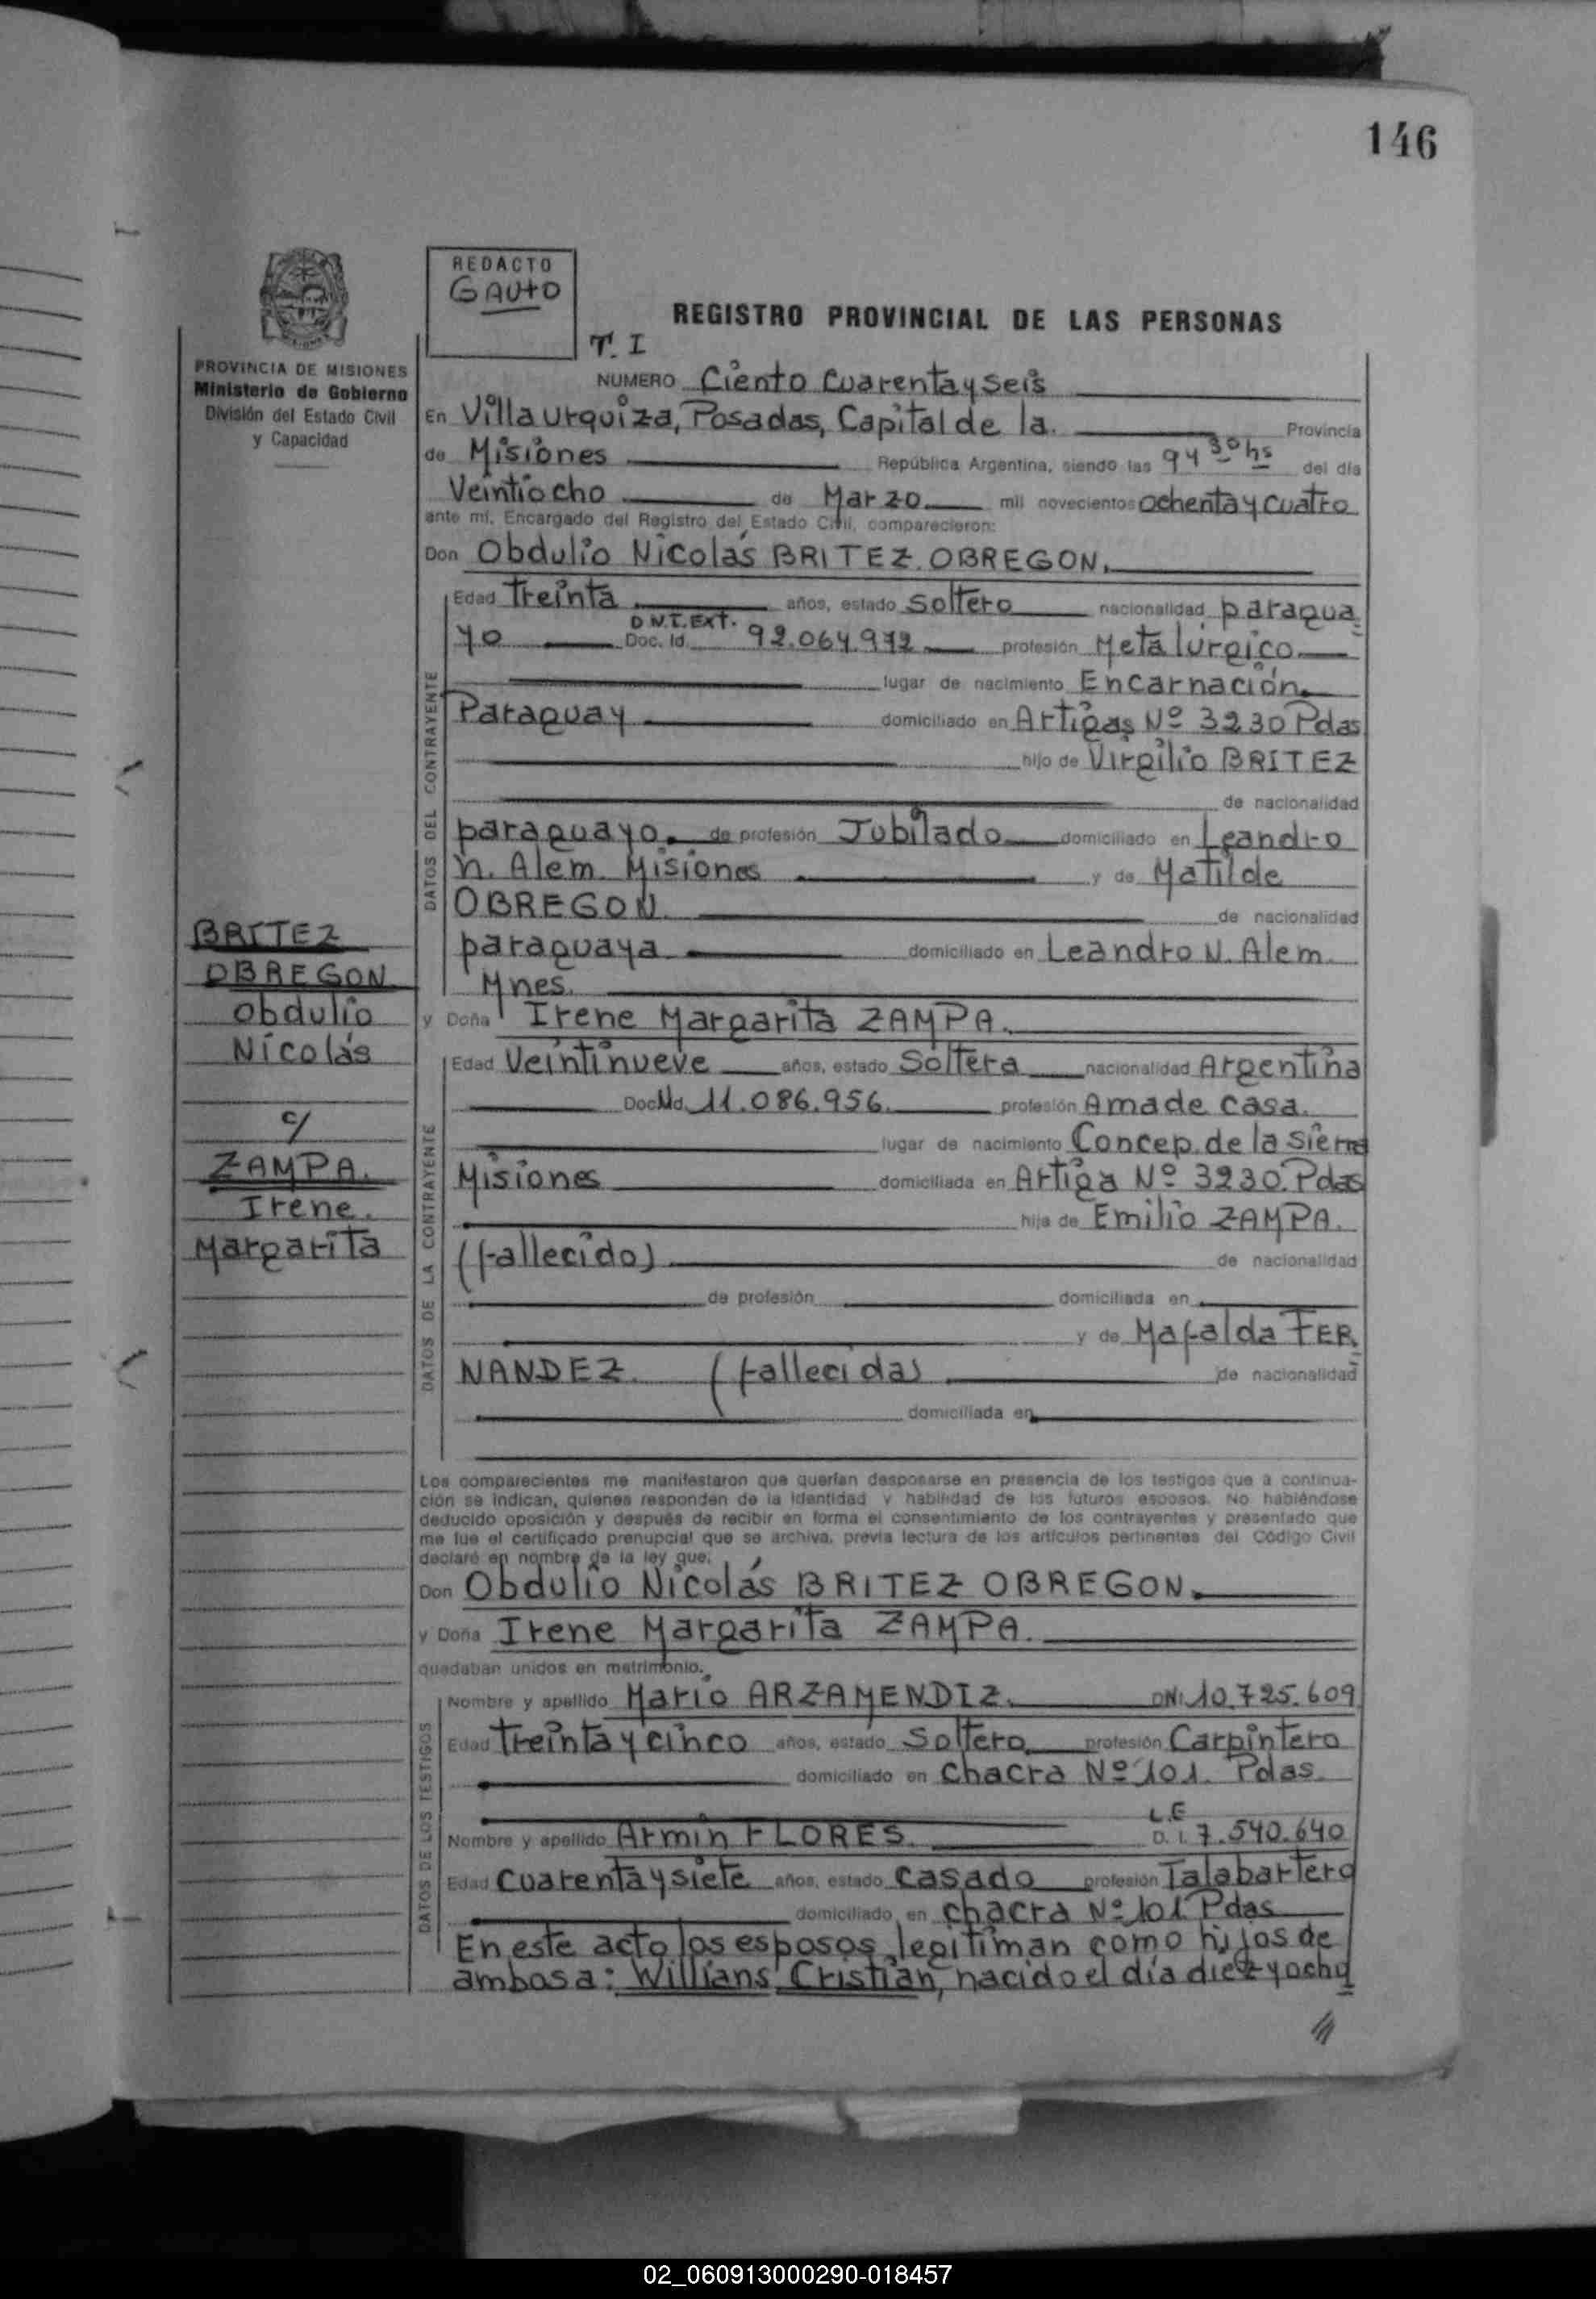 146
REDACTO
GAUTO
REGISTRO PROVINCIAL DE LAS PERSONAS
T. I
PROVINCIA DE MISIONES
Ministerio de Gobierno
División del Estado Civil
y Capacidad
NUMERO Ciento Cuarenta y seis
En Villa Urquiza, Posadas, Capital de la Provincia
de Misiones República Argentina, siendo las hs del día
Veintiocho de Marzo mil novecientos ochenta y cuatro
ante mí, Encargado del Registro del Estado Civil, comparecieron:
Don Obdulio Nicolás BRITEZ OBREGON.
Edad treinta años, estado soltero nacionalidad paragua
yo D.N.I. Ext. Doc. Id. 92.064.972 profesión Metalúrgico
lugar de nacimiento Encarnación
Paraguay domiciliado en Artigas Nº 3230 Pdas
hijo de Virgilio BRITEZ
de nacionalidad
paraguayo de profesión Jubilado domiciliado en Leandro
N. Alem. Misiones y de Matilde
OBREGON de nacionalidad
paraguaya domiciliado en Leandro N. Alem.
Mnes.
y Doña Irene Margarita ZAMPA.
Edad Veintinueve años, estado Soltera nacionalidad Argentina
Doc. Id. 11.086.956 profesión Ama de casa.
lugar de nacimiento Concep. de la Sierra
Misiones domiciliada en Artiga Nº 3230. Pdas
hija de Emilio ZAMPA.
(fallecido) de nacionalidad
de profesión domiciliada en
y de Mafalda FER
NANDEZ. (fallecida) de nacionalidad
domiciliada en
BRITEZ
OBREGON
Obdulio
Nicolás
c/
ZAMPA.
Irene.
Margarita
DATOS DEL CONTRAYENTE
DATOS DE LA CONTRAYENTE
Los comparecientes me manifestaron que querían desposarse en presencia de los testigos que a continua-
ción se indican, quienes responden de la identidad y habilidad de los futuros esposos. No habiéndose
deducido oposición y después de recibir en forma el consentimiento de los contrayentes y presentado que
me fue el certificado prenupcial que se archiva, previa lectura de los artículos pertinentes del Código Civil
declaré en nombre de la ley que:
Don Obdulio Nicolás BRITEZ OBREGON.
y Doña Irene Margarita ZAMPA.
quedaban unidos en matrimonio.
DATOS DE LOS TESTIGOS
Nombre y apellido Mario ARZAMENDIZ. DNI 10.725.609
Edad treinta y cinco años, estado Soltero profesión Carpintero
domiciliado en Chacra Nº 101. Pdas.
Nombre y apellido Armin FLORES. L.E D. I. 7.540.640
Edad Cuarenta y siete años, estado Casado profesión Talabartero
domiciliado en chacra Nº 101 Pdas
En este acto los esposos legitiman como hijos de
ambos a: Willians Cristian, nacido el día diez y ocho
02_060913000290-018457